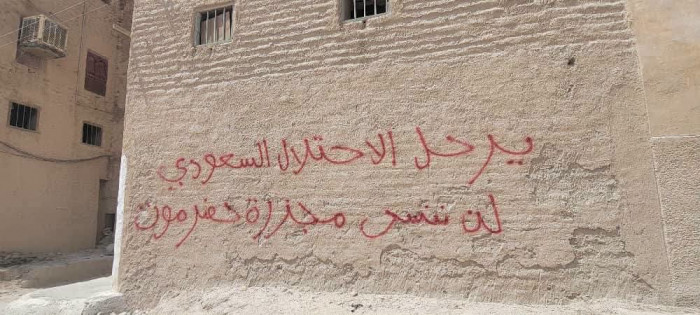 يرحل الاحتلال السعودي
لن ننسى مجزرة حضرموت